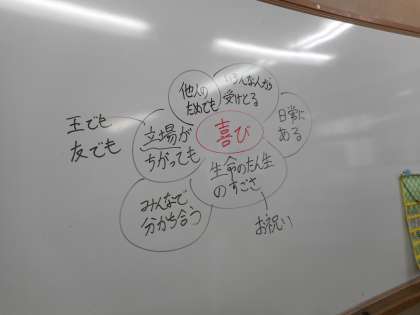 他人の
ためでも
いろんな人から
受けとる
王でも
友でも
立場が
ちがっても
喜び
日常に
ある
生命のたん生
のすごさ
みんなで
分かち合う
お祝い